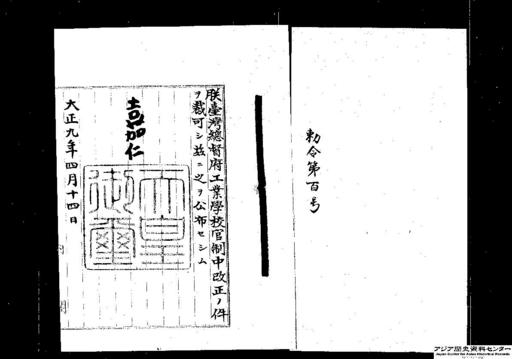 勅令第百号
朕臺灣總督府工業學校官制中改正ノ件
ヲ裁可シ茲ニ之ヲ公布セシム
嘉仁
天皇御璽
大正九年四月十四日
アジア歴史資料センター
Japan Center for Asian Historical Records